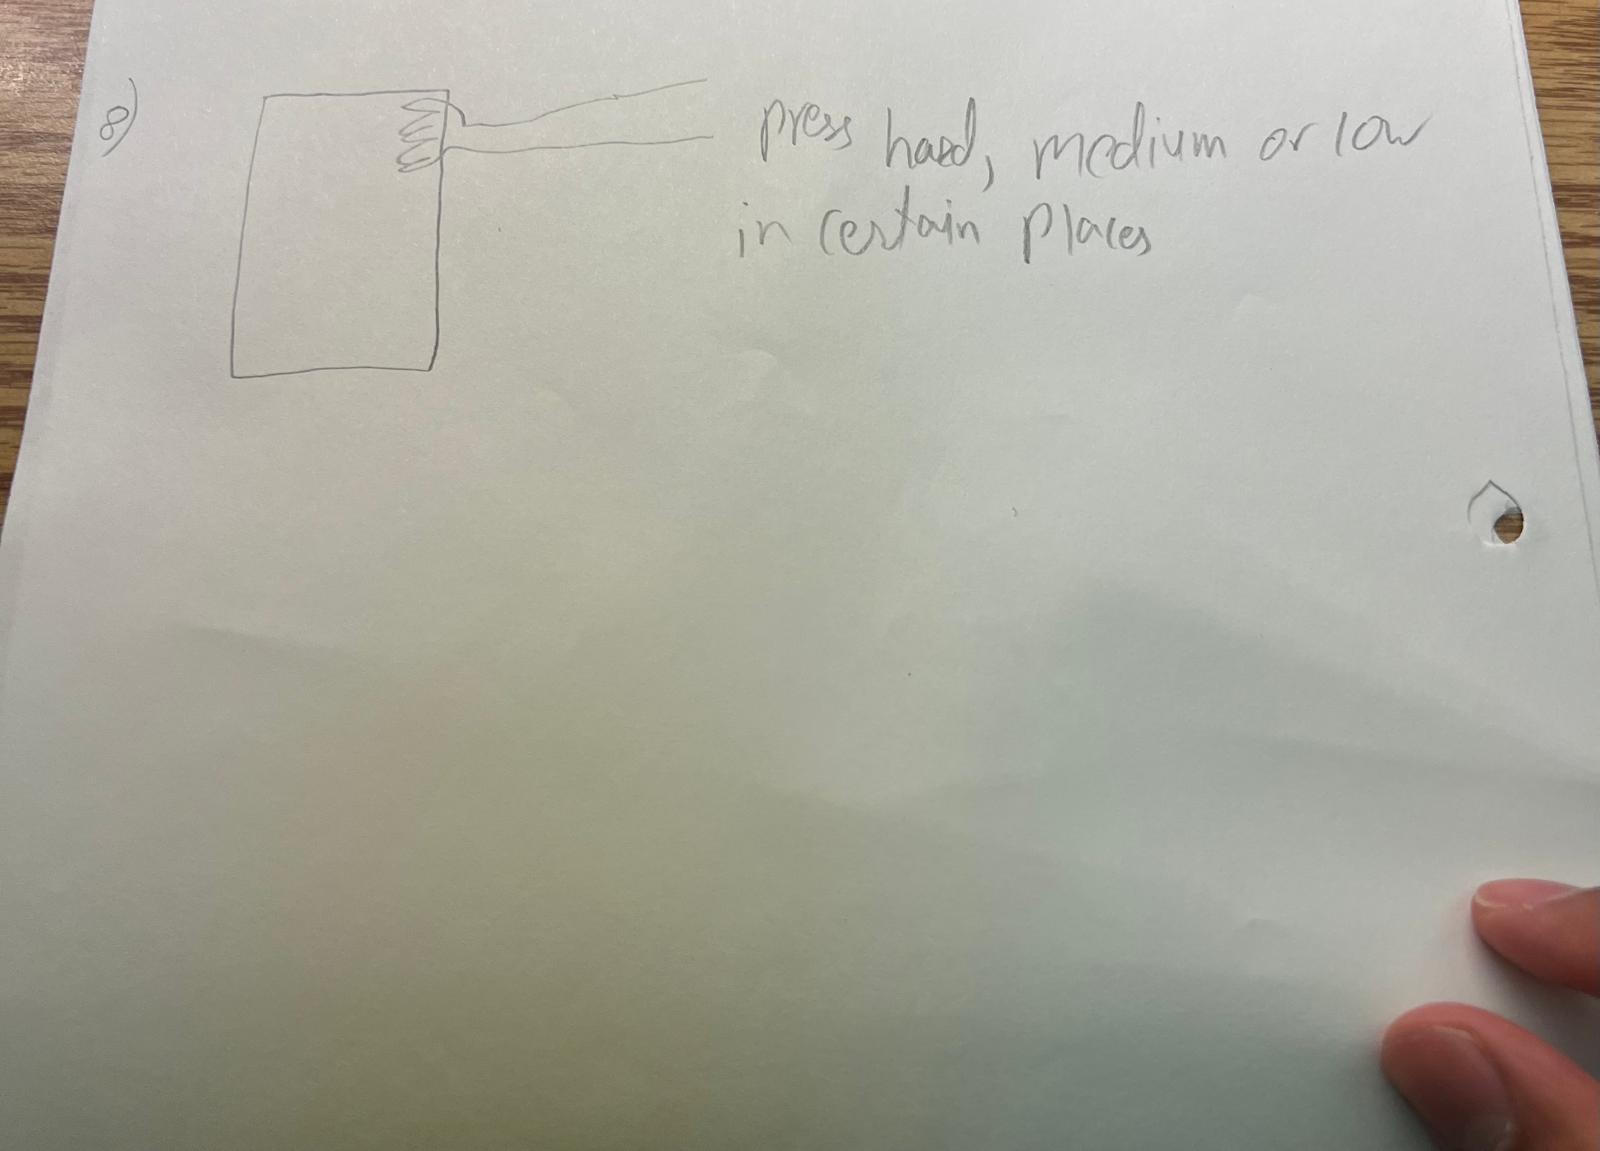 8)
press hard, medium or low
in certain places